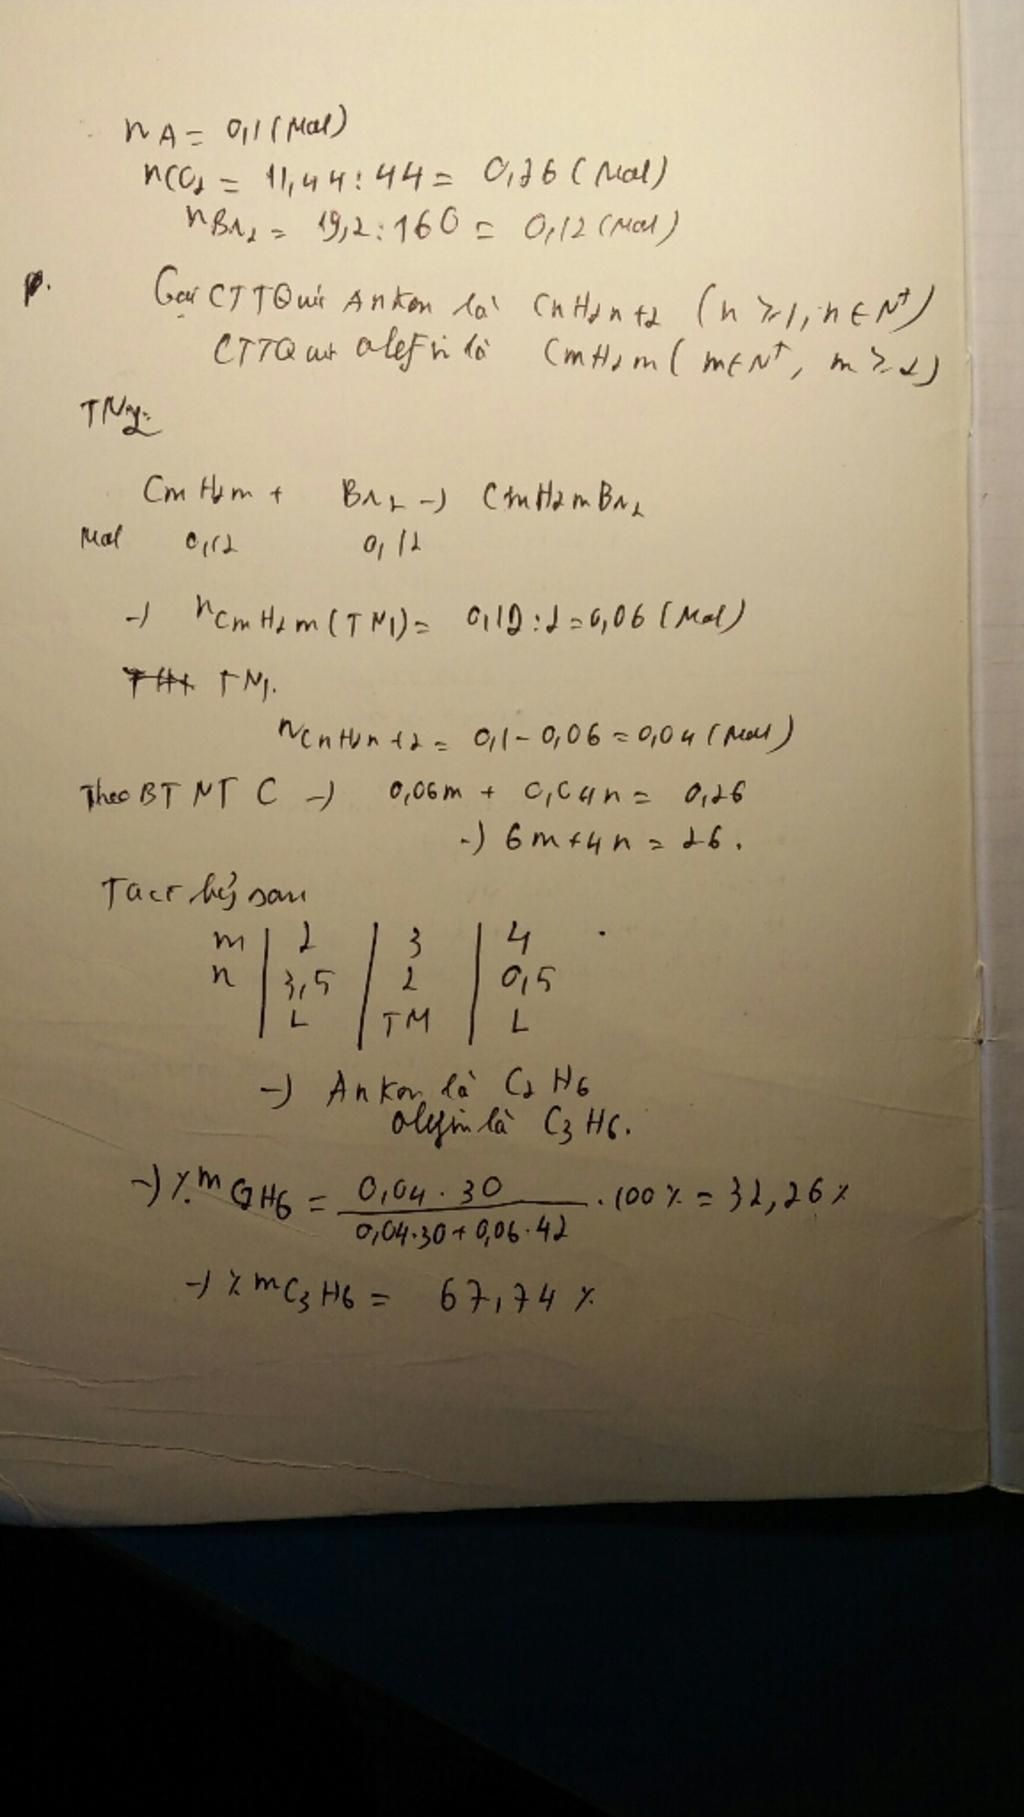 nA = 0,1 (Mol)
nCO2 = 11,44 : 44 = 0,26 (Mol)
nBr2 = 19,2 : 160 = 0,12 (Mol)
Gọi CTTQ của Ankan là CnH2n+2 (n ≥ 1, n ∈ N+)
CTTQ của olefin là CmH2m (m ∈ N+, m ≥ 2)
TN2:
CmH2m + Br2 → CmH2mBr2
Mol 0,12 0,12
→ nCmH2m (TN1) = 0,12 : 2 = 0,06 (Mol)
TN1.
nCnH2n+2 = 0,1 - 0,06 = 0,04 (Mol)
Theo BT NT C → 0,06m + 0,04n = 0,26
→ 6m + 4n = 26.
Ta có bảng sau
m | 2 | 3 | 4
n | 3,5 | 2 | 0,5
L | TM | L
→ Ankan là C2H6
olefin là C3H6.
→ %mC2H6 = 0,04.30 / 0,04.30 + 0,06.42 . 100% = 32,26%
→ %mC3H6 = 67,74%